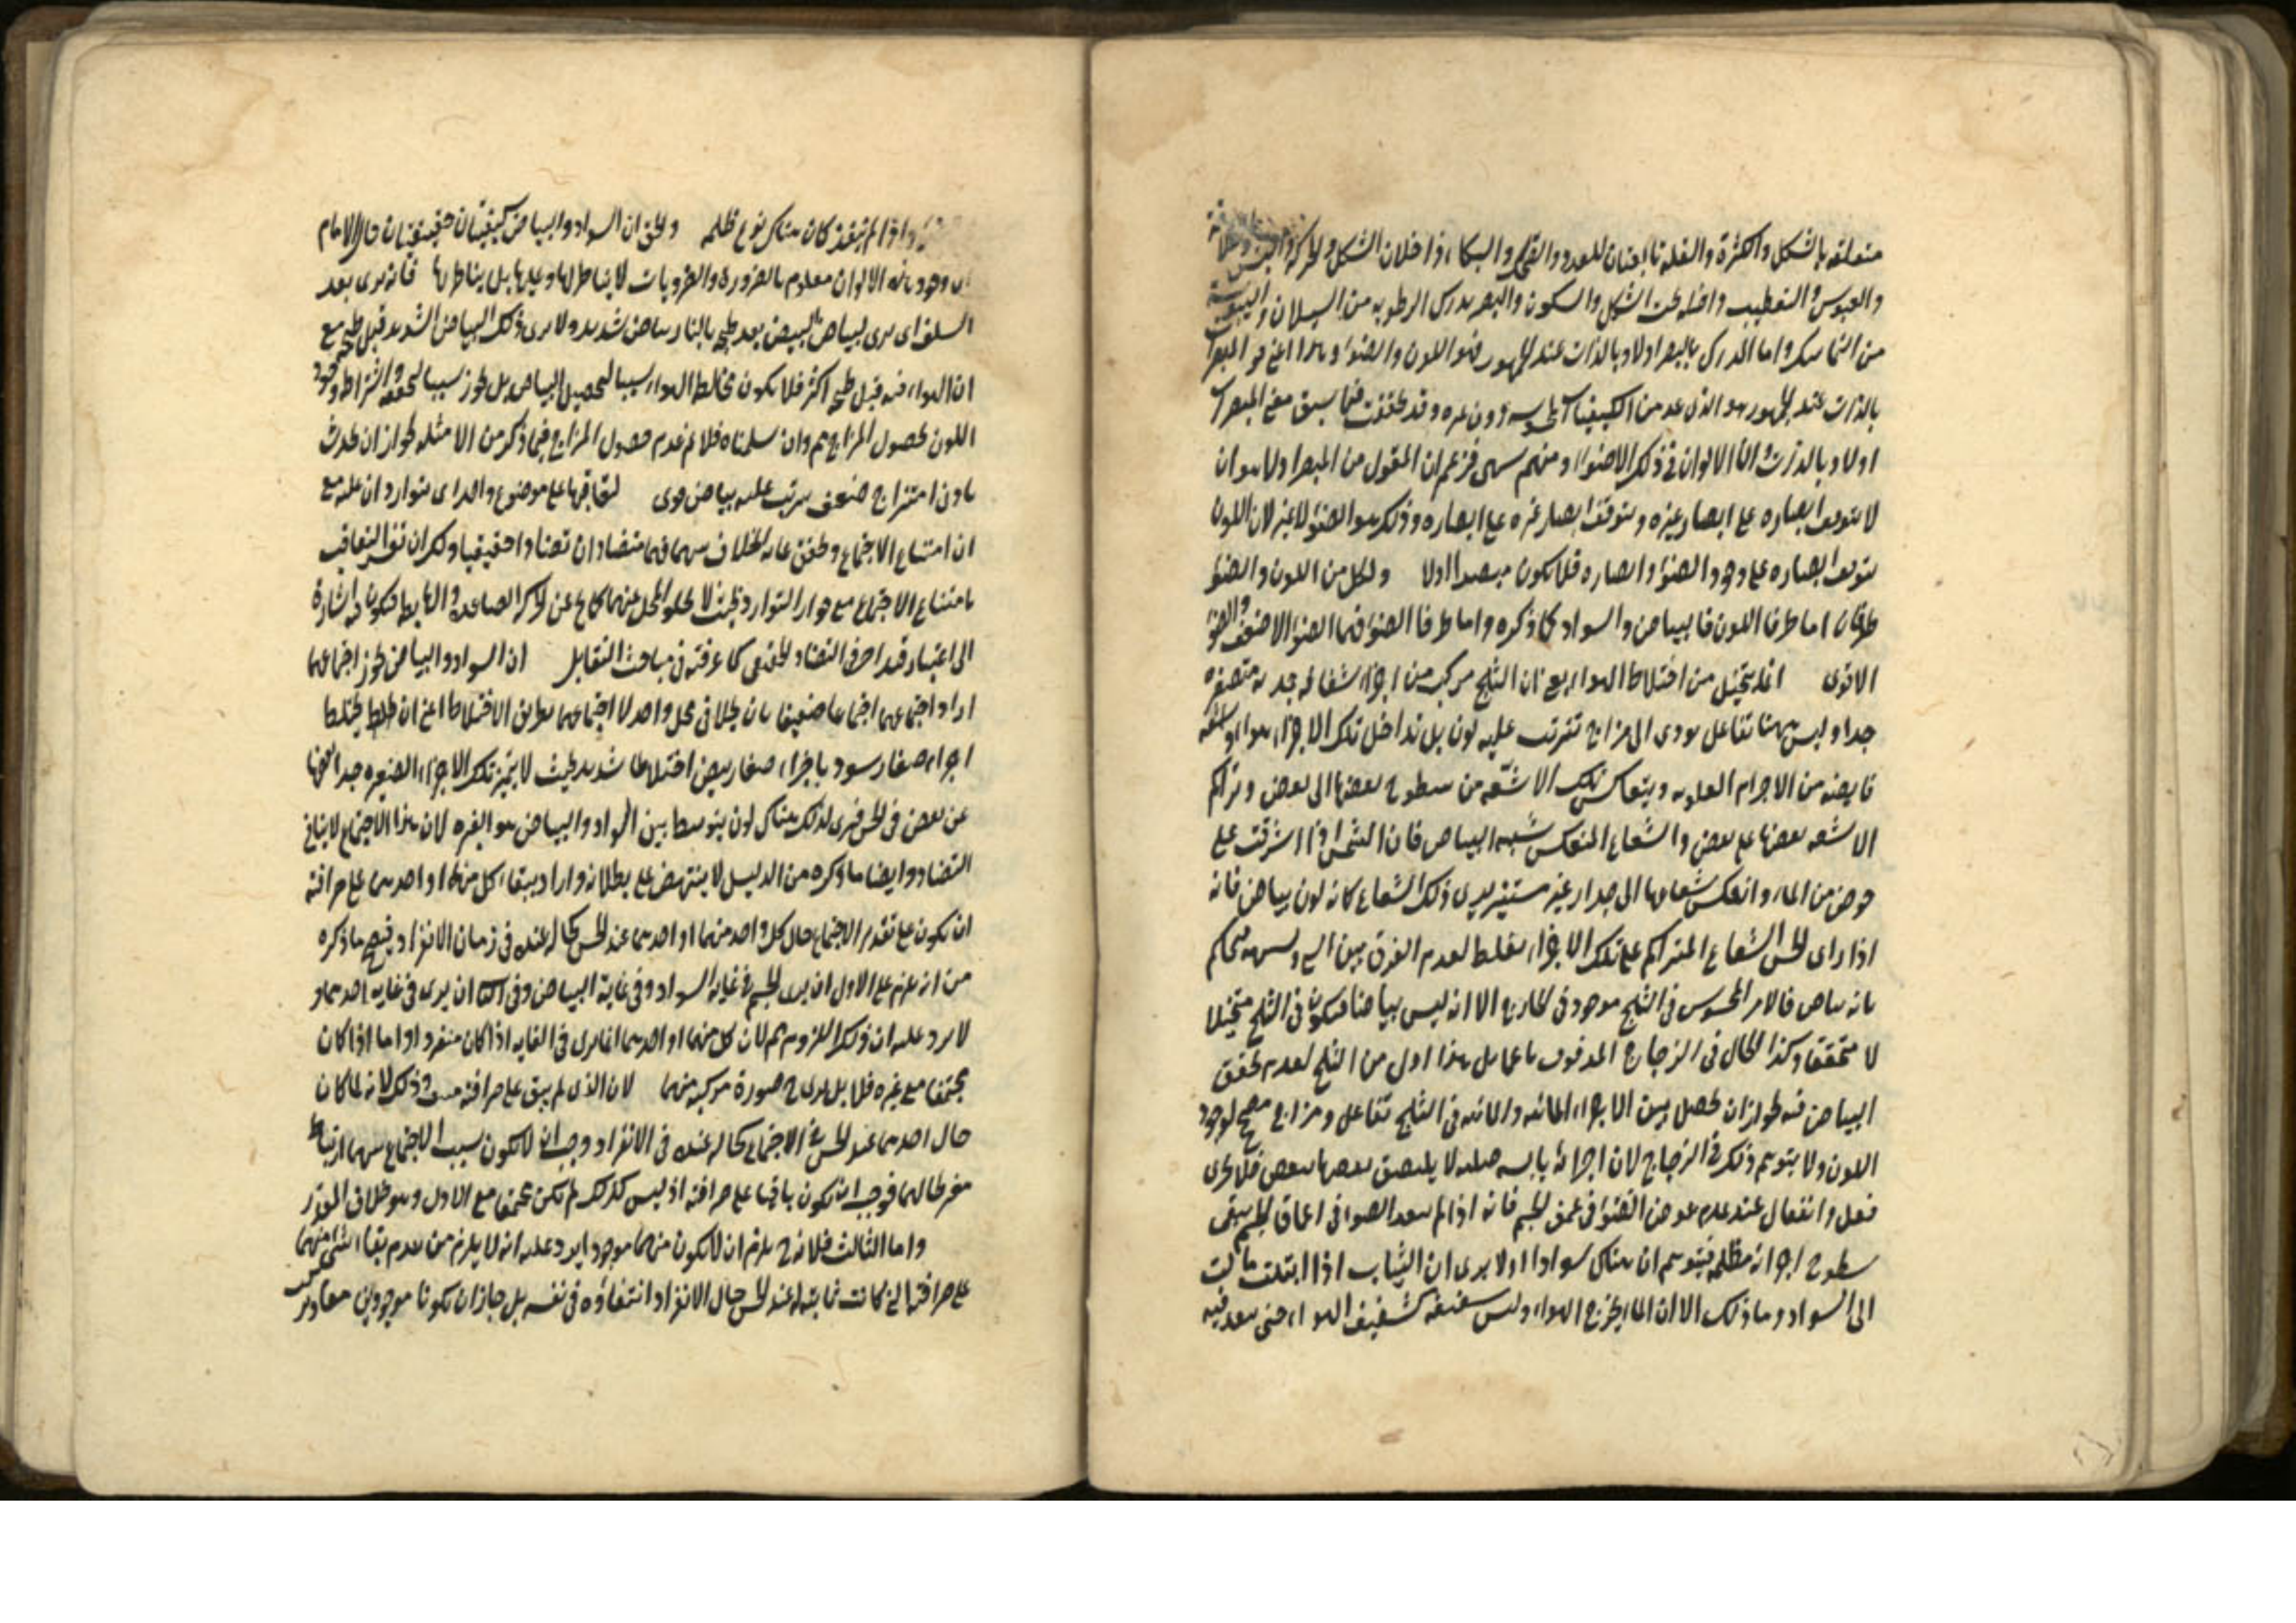 متعلقة بالشكل والكثرة والقلة تابعتان للعدد والضحك والبكاء داخلان الشكل والحركة والبشر
والعبوس والتقطيب داخلة تحت الشكل والسكون والبصر يدرك الرطوبة من السيلان واليبوسة
من التماسك واما المدرك بالبصر اولا وبالذات عند الجمهور فهو اللون والضوء وهذا اعنى هو المبصر
بالذات عند الجمهور هو الذى عد من الكيفيات المحسوسة دون غيره وقد تحققت فيما سبق معنى المبصر
اولا وبالذات الالوان فى ذلك الاضواء ومنهم من زعم ان المقول من المبصر اولا هو ان
لا يتوقف ابصاره على ابصار غيره ويتوقف ابصار غيره على ابصاره وذلك هو الضوء لا غير لان اللون
يتوقف ابصاره على وجود الضوء وابصاره فلا يكون مبصرا اولا ولكل من اللون والضوء
طرفان اما طرفا اللون فالبياض والسواد كما ذكره واما طرفا الضوء فهما الضوء الاضعف والضوء
الاقوى انما يتخيل من اختلاط الهواء يعنى ان الثلج مركب من اجزاء شفافة جمدية متصغرة
جدا وليس هنا تفاعل يودى الى مزاج تترتب عليه لون بل تداخل تلك الاجزاء هواء واشعة
فايضة من الاجرام العلوية ويتعاكس تلك الاشعة من سطوح بعضها الى بعض وتراكم
الاشعة بعضها على بعض والشعاع المنعكس شبيه البياض فان الشمس اذا اشرقت على
حوض من الماء وانعكس شعاعها الى جدار غير مستنير يرى ذلك الشعاع كانه لون بياض فانه
اذا راى الحس الشعاع المتراكم على تلك الاجزاء يغلط لعدم الفرق بين الشئ وشبهه فيحكم
بانه بياض فالامر المحسوس فى الثلج موجود فى الخارج الا انه ليس بياضا فيكون فى الثلج متخيلا
لا متحققا وكذا الحال فى الزجاج المدقوق ناعما بل هذا اولى من الثلج لعدم تحقق
البياض فيه لجواز ان يحصل بين الاجزاء المائية والهائية فى الثلج تفاعل ومزاج مصحح لوجود
اللون ولا يتوهم ذلك فى الزجاج لان اجزائه يابسة صلبة لا يلتصق بعضها ببعض فلا يجرى
فعل وانفعال عند عدم غوص الضوء فى عمق الجسم فانه اذا لم ينفذ الضوء فى اعماق الجسم يبقى
سطوح اجزائه مظلمة فيتوهم ان هناك سوادا اولا يرى ان الثياب اذا ابتلت مالت
الى السواد وما ذلك الا ان الماء يخرج الهواء وليس شفيفه كشفيف الهواء حتى ينفذ فيه
واذا لم ينفذ كان هناك نوع ظلمة والحق ان السواد والبياض كيفيتان حقيقيتان قال الامام
وجود هذه الالوان معلوم بالضرورة والضروريات لا يناظر لها وعليها بل يناظر بها فانه يرى بعد
السلق اى يرى لبياض البيض بعد طبخه بالنار بياض شديد ولا يرى ذلك البياض الشديد قبل طبخه مع
ان الهواء فيه قبل طبخه اكثر فلا يكون مخالط الهواء سببا لتحصيل البياض بل يجوز سببا لتحققه واشتراط وجود
اللون لحصول المزاج مم وان سلمناه فلا نم عدم حصول المزاج فيما ذكر من الامثلة لجواز ان يحدث
بادنى امتزاج ضعيف يترتب عليه بياض قوى لتعاقبهما على موضوع واحد اى تواردان عليه مع
ان امتناع الاجتماع وتحقق غاية الخلاف بينهما فهما متضادان تضادا حقيقيا ولك ان تفسر التعاقب
بامتناع الاجتماع مع جواز التوارد بحيث لا يخلو المحل عنهما كالجسم عن الحركة الصاعدة والهابطة فيكون فيه اشارة
الى اعتبار قيد اخر فى التضاد الحقيقى كما عرفته فى مباحث التقابل ان السواد والبياض يجوز اجتماعهما
اراد اجتماعهما اجتماعا حقيقيا بان يحلا فى محل واحد لا اجتماعهما بطريق الاختلاط اعنى ان يختلط
اجزاء صغار سود باجزاء صغار بيض اختلاطا شديدا بحيث لا يتميز تلك الاجزاء الصغيرة جدا بعضها
عن بعض فى الحس فيرى لذلك هناك لون يتوسط بين السواد والبياض هو الغبرة لان هذا الاجتماع لا ينافى
التضاد وايضا ما ذكره من الدليل لا ينتهض على بطلانه واراد ببقاء كل منهما او احدهما على صرافته
ان يكون على تقدير الاجتماع حال كل واحد منهما او احدهما عند الحس كحاله عنده فى زمان الانفراد فيتجه ما ذكره
من انه يلزم على الاول ان يرى الجسم فى غاية السواد وفى غاية البياض وفى الثانى ان يرى فى غاية احدهما و
لا يرد عليه ان ذلك اللزوم مم لان كل منهما او احدهما انما يرى فى الغاية اذا كان منفردا واما اذا كان
مجتمعا مع غيره فلا بل يرى ح صورة مركبة منهما لان الذى لم يبق على صرافته وذلك لانه لما كان
حال احدهما عند الحس فى الاجتماع كحاله عنده فى الانفراد وجب ان لا يكون بسبب الاجتماع بينهما ارتباط
مغير حالهما فوجب ان يكون باقيا على صرافته اذ ليس كذلك لم يكن مجتمعا مع الاول وهو خلاف المقدر
واما الثالث فلانه ح يلزم ان لا يكون منهما موجود يرد عليه انه لا يلزم من عدم بقاء الشئ منهما
على صرافتها التى كانت ثابتة له عند الحس حال الانفراد انتفاؤه فى نفسه بل جاز ان يكونا موجودين